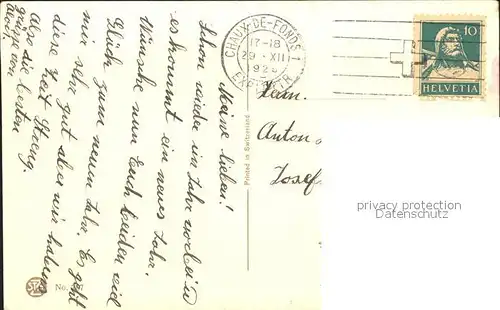 Meine lieben!
Schon wieder ein Jahr vorbei u
es kommt ein neues Jahr.
Wünsche nun Euch beiden viel
Glück zum neuen Jahr. Es geht
mir sehr gut aber wir haben
diese Zeit Streng.
Also die besten
Grüße von
CHAUX-DE-FONDS 1
17-18
29. XII
192
HELVETIA
10
Herrn
Anton
Josef
Printed in Switzerland
No.
privater Vorbesitzer
Datenschutz